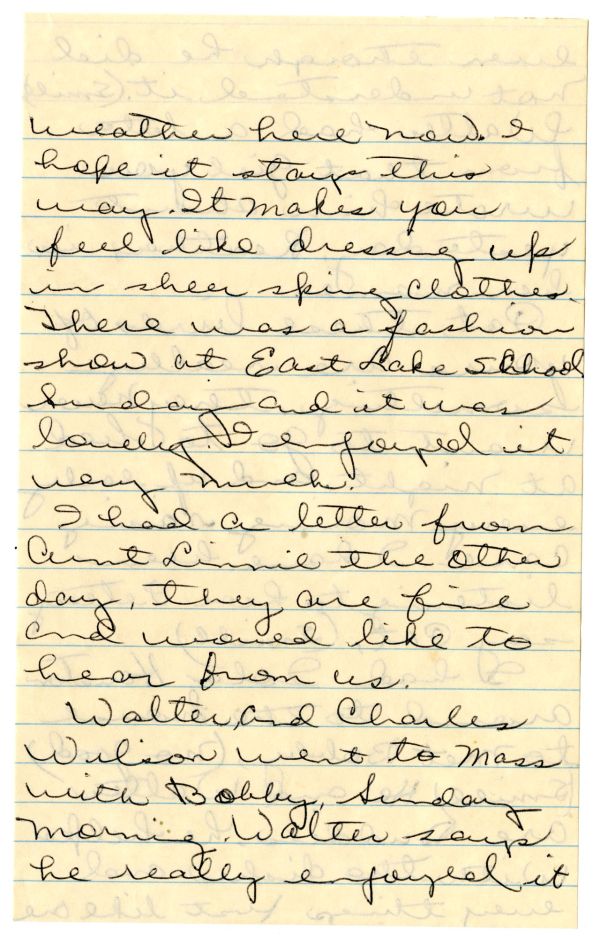 weather here now. I
hope it stays this
way. It makes you
feel like dressing up
in sheer sping clothes.
There was a fashion
show at East Lake School
Sunday and it was
lovely. I enjoyed it
very much.
I had a letter from
Aunt Linnie the other
day, they are fine
and would like to
hear from us.
Walter, and Charles
Wilson went to Mass
with Bobby, Sunday
morning. Walter says
he really enjoyed it